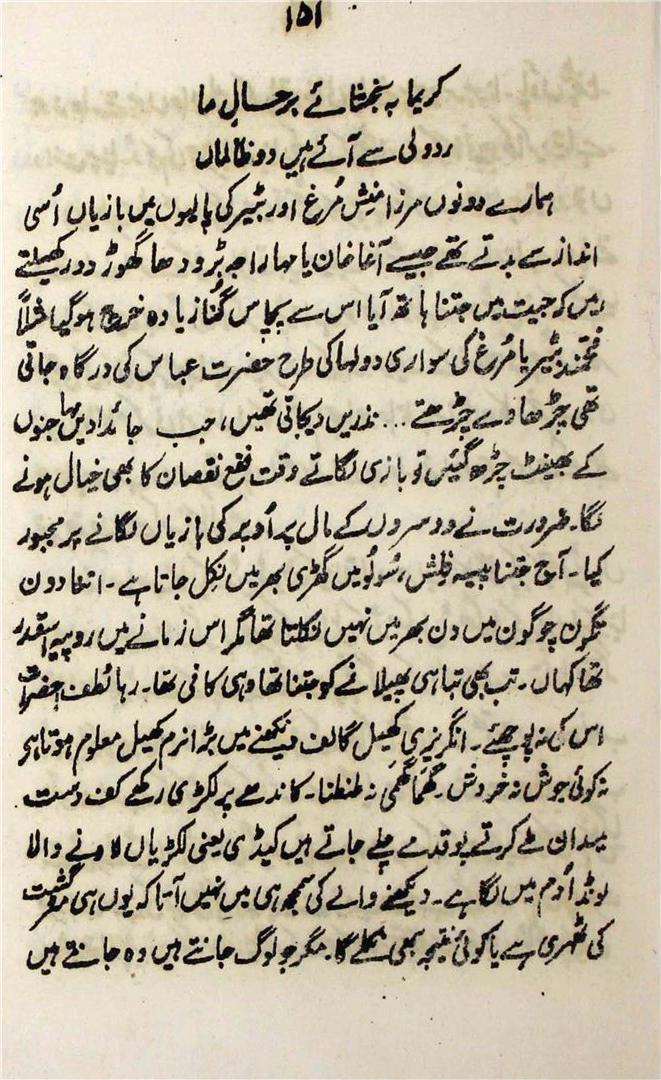 ۱۵۱
کریما بہ بخشائے بر حسالِ ما
ردولی سے آئے ہیں دو ظالماں
ہمارے دونوں مرزا منِش مُرغ اور بٹیر کی پالیوں میں بازیاں اُسی
انداز سے بدتے تھے جیسے آغا خان یا مہاراجہ بڑودھا گھوڑ دوڑ کھیلتے
ہیں کہ جیت میں جتنا ہاتھ آیا اس سے پچاس گُنا زیادہ خرچ ہوگیا مثلاً
فتحمند بٹیر یا مُرغ کی سواری دولہا کی طرح حضرت عباس کی درگاہ جاتی
تھی چڑھاوے چڑھتے ... نذریں دیجاتی تھیں، جب جائدادیں مہاجنوں
کے بھینٹ چڑھ گئیں تو بازی لگاتے وقت نفع نقصان کا بھی خیال ہونے
لگا۔ ضرورت نے دوسروں کے مال پر اُوپر کی بازیاں لگانے پر مجبور
کیا۔ آج جتنا پیسہ فلِش، سُولُو میں گھڑی بھر میں نکِل جاتا ہے۔ اتنا دون
تگون چوگون میں دن بھر میں نہیں نکلتا تھا مگر اس زمانے میں روپیہ اسقدر
تھا کہاں۔ تب بھی تباہی پھیلانے کو جتنا تھا وہی کافی تھا۔ رہا لُطف حضرات
اس کی نہ پوچھئے۔ انگریزی کھیل گالف دیکھنے میں بڑا نرم کھیل معلوم ہوتا ہے
نہ کوئی جوش نہ خروش۔ گہما گہمی نہ طنطنا۔ کاندھے پر لکڑی رکھے کف دست
میدان طے کرتے پو قدمے چلے جاتے ہیں کیڈی یعنی لکڑیاں لادنے والا
لونڈا دُم میں لگا ہے۔ دیکھنے والے کی سمجھ ہی میں نہیں آتا کہ یوں ہی مٹرگشت
کی ٹھہری ہے یا کوئی نتیجہ بھی نکلے گا۔ مگر جو لوگ جانتے ہیں وہ جانتے ہیں